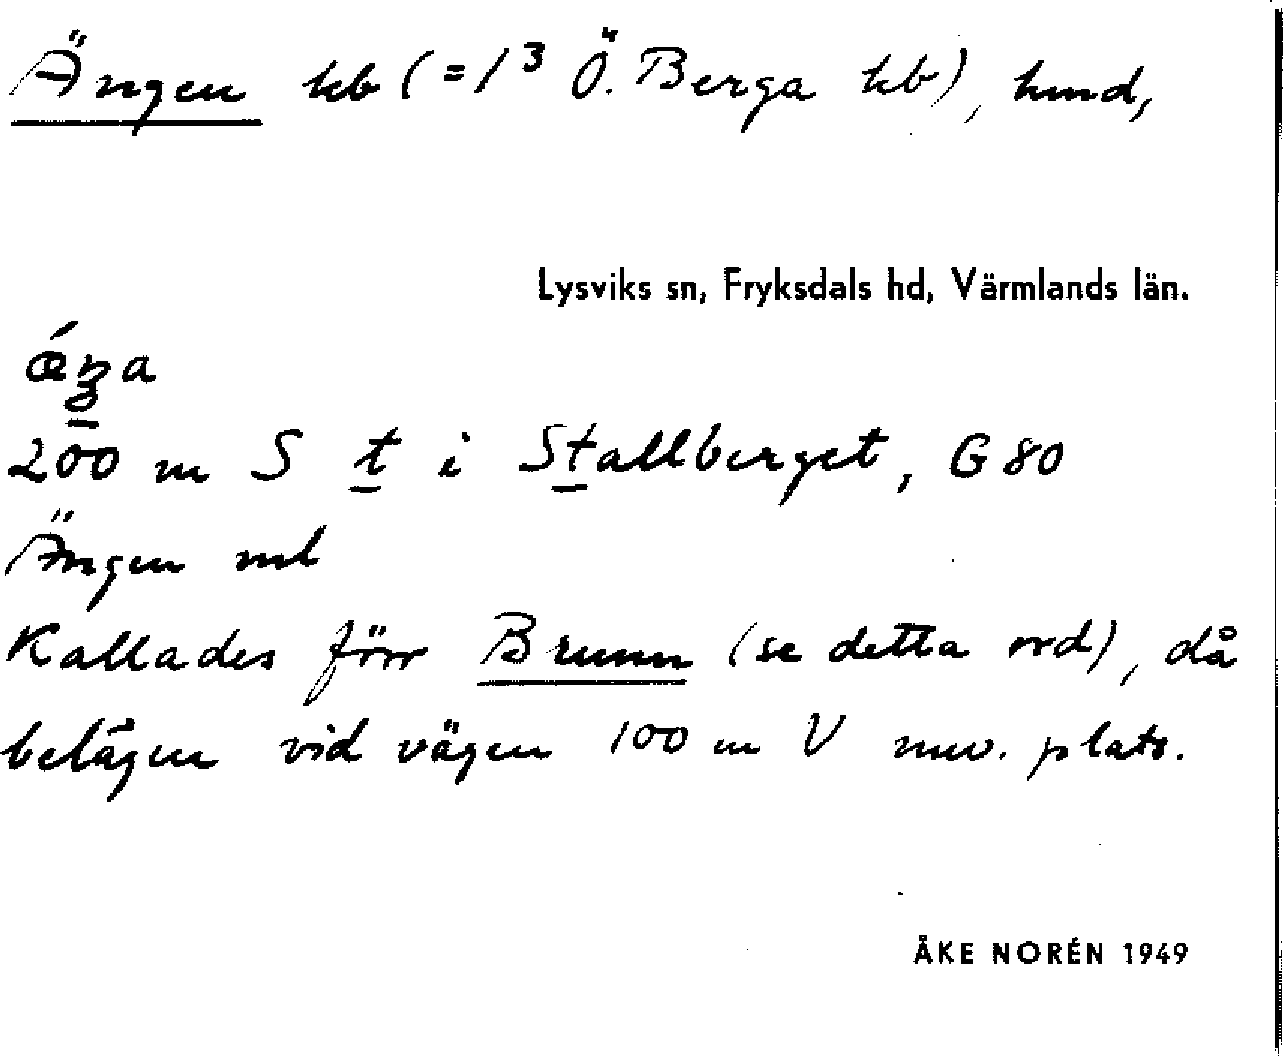 Ängen hb (=1³ Ö. Berga hb), hmd,
Lysviks sn, Fryksdals hd, Värmlands län.
200 m S t i Stallberget, G 80
Ängen mb
Kallades förr Brunn (se detta ord), då
belägen vid vägen 100 m V nuv. plats.
ÅKE NORÉN 1949